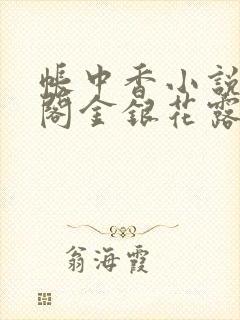 帳中香小説
閣金銀花露
翁海霞